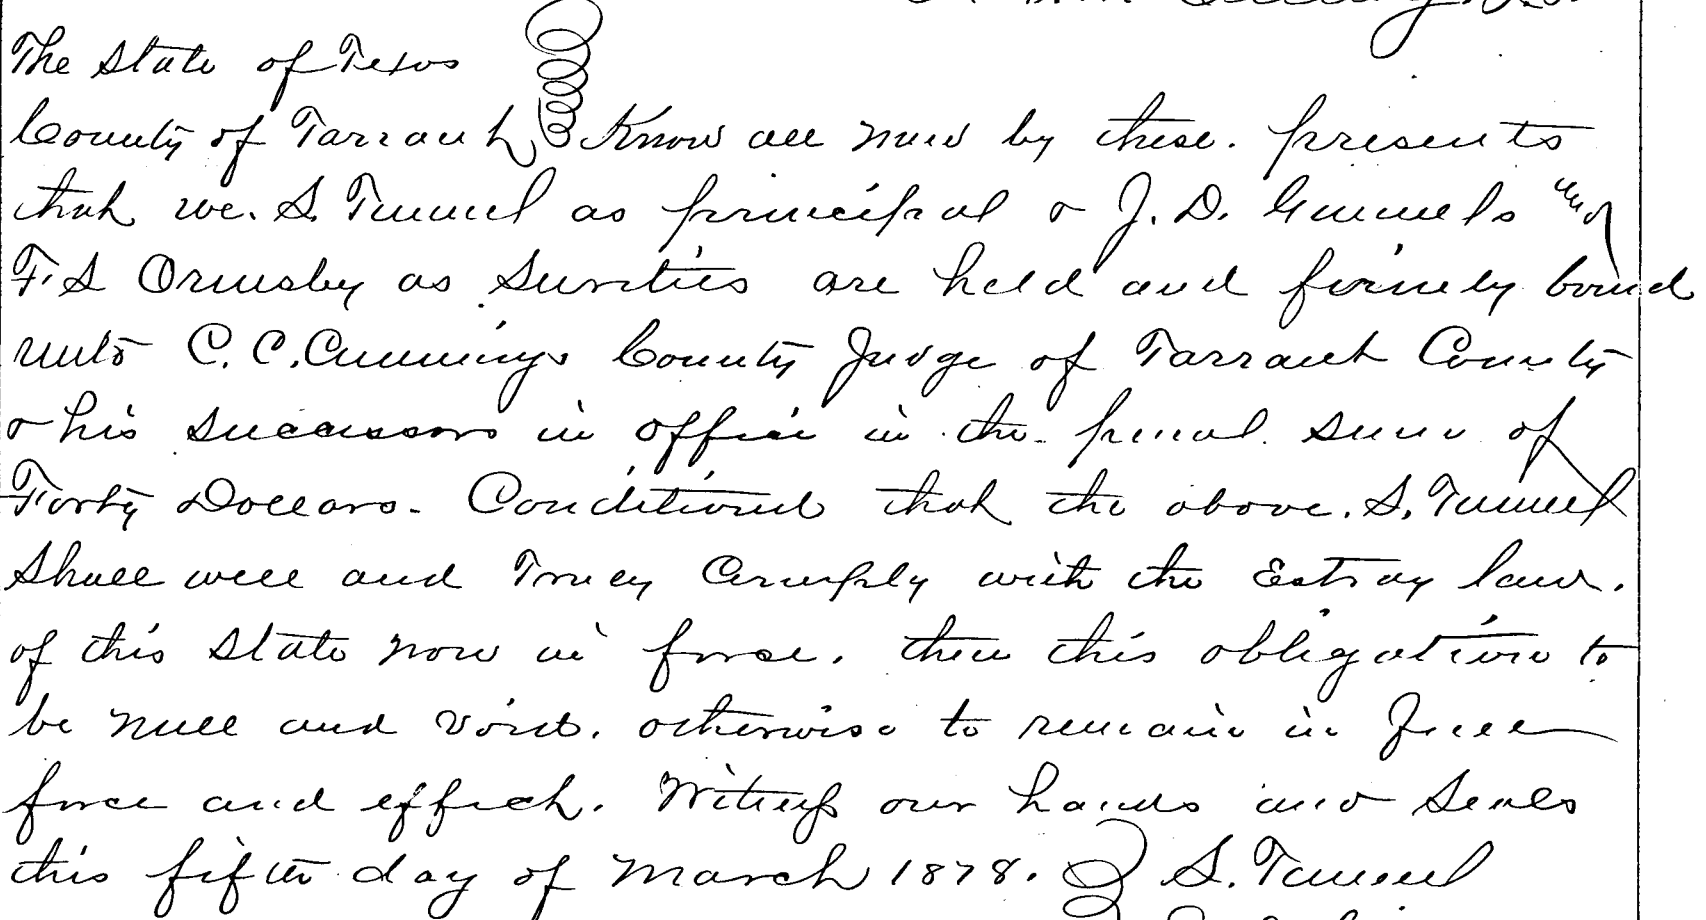 The State of Texas
County of Tarrant Know all men by these. presents
that we. S. Tunnel as principal & J. D. Gunnels and
F. S Ormsby as Sureties are held and firmly bound
unto C. C. Cummings County Judge of Tarrant County
& his successors in office in the penal sum of
Forty Dollars. Conditioned that the above. S. Tunnel
Shall well and Truly Comply with the Estray law.
of this State now in force. then this obligation to
be null and void. otherwise to remain in full
force and effect. Witness our hands and Seals
this fifth day of March 1878. S. Tunnel